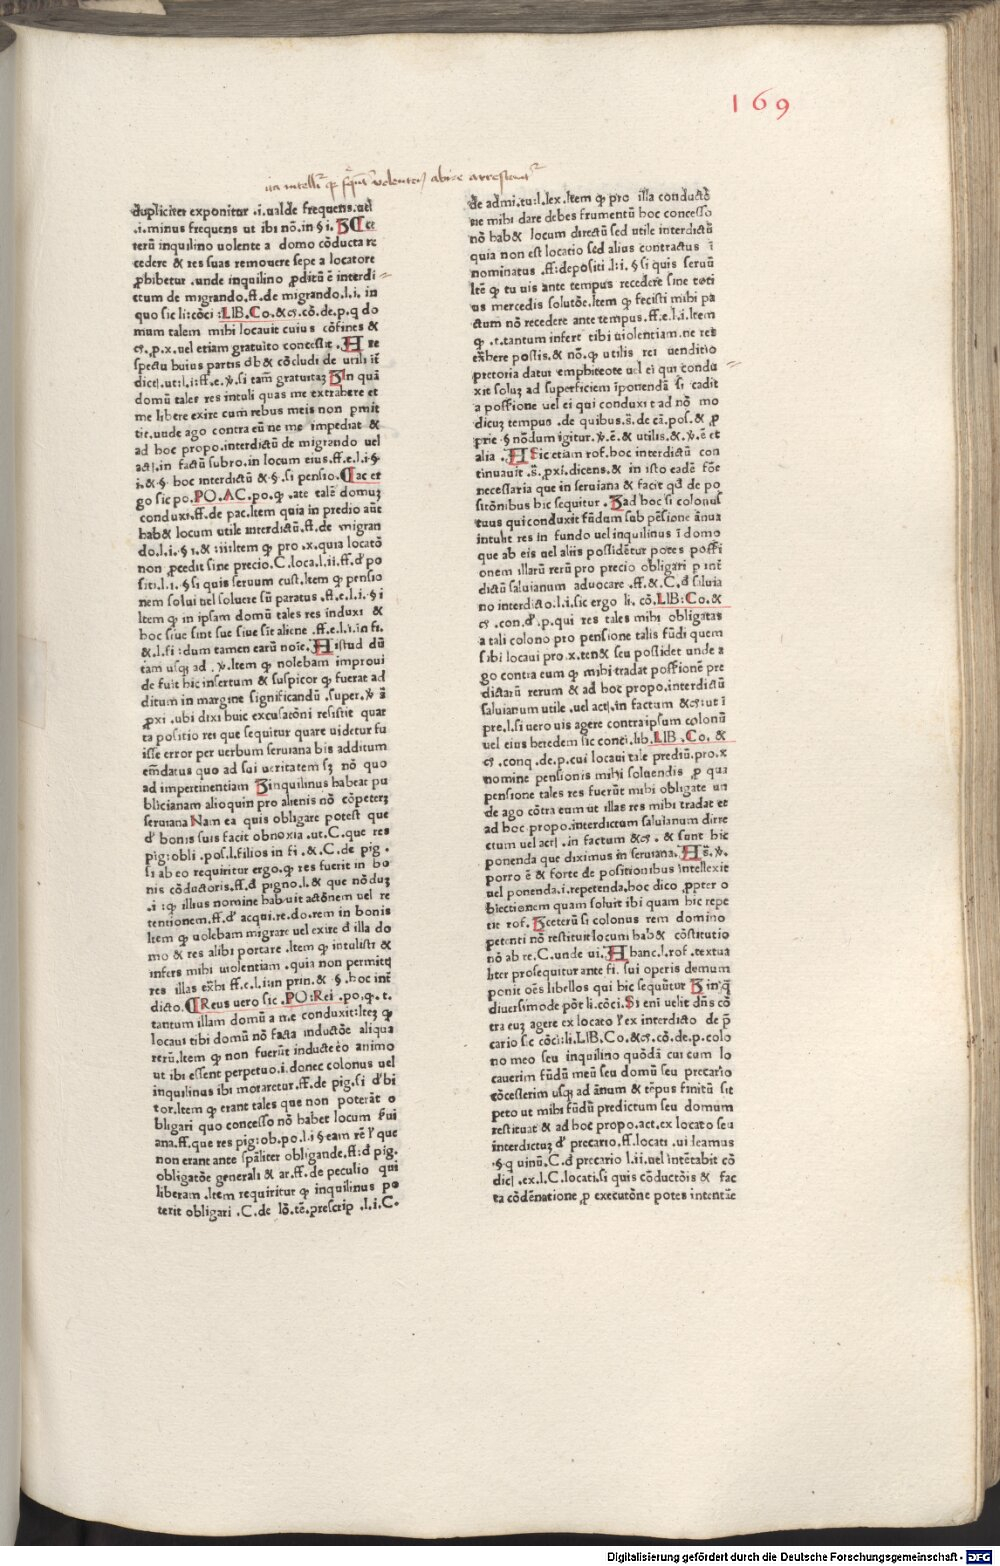 169
dupliciter exponitur .i. ualde frequens.uel
.i. minus frequens ut ibi nō.in §i. Ce
terū inquilino uolente a domo cōducta re
cedere & res suas remouere sepe a locatore
ꝓhibetur .unde inquilino ꝓditū ē interdi-
ctum de migrando.ff.de migrando.l.i. in
quo sic li:cōci :LIB.Co.&cꝫ.cō.de.p.q do
mum talem mihi locauit cuius cōfines &
cꝫ.p.x.uel etiam gratuito concessit. A re
spectu huius partis dꝫb & cōcludi de utili it̄
dicel.ut:l.i:ff.e.ꝟ.si tam̄ gratuitaꝫ In quā
domū tales res intuli quas me extrahere et
me libere exire cum rebus meis non ꝑmit
tit.unde ago contra eū ne me impediat &
ad hoc propo.interdictū de migrando uel
act.in factū subro.in locum eius.ff.e.l.i.§
i.&.§ hoc interdictū &.§.si pensio. Cac et
go sic po.PO.AC.po.ꝙ.a te talē domuꝫ
conduxi.ff.de pac.Item quia in predio aūt
hab& locum utile interdictū.ff.de migran
do.l.i.§ 1.& :iii:Item ꝙ pro .x.quia locatō
non ꝓcedit sine precio.C.loca.l.ii.ff.đ po
siti.l.i.§ si quis seruum cust.Item ꝙ pensio
nem solui uel soluere sū paratus .ff.e.l.i.§ i
Item ꝙ in ipsam domū tales res induxi &
hoc siue sint sue siue sīt aliene .ff.e.l.i.in fi.
&.l.fi:dum tamen earū noīe. A istud dū
tam usqꝫ ad .ꝟ.Item ꝙ nolebam improui
de fuit hic insertum & suspicor ꝙ fuerat ad
ditum in margine significandū .super.ꝟ s̄
ꝓxi .ubi dixi huic excusatōni resistit quar
ta positio rei que sequitur quare uidetur fu
isse error per uerbum seruiana bis additum
em̄datus quo ad sui ueritatem sꝫ nō quo
ad impertinentiam inquilinus habeat pu
blicianam alioquin pro alienis nō cōpeterꝫ
seruiana Nam ea quis obligare potest que
đ bonis suis facit obnoxia .ut.C.que res
pig:obli .pos.l.filios in fi .&.C.de pig .
si ab eo requiritur ergo.ꝙ res fuerit in bo
nis cōductoris.ff.đ pigno.l.& que nōduꝫ
.i :ꝙ illius nomine habuit actōnem uel re
tentionem.ff.đ acqui.re.do.rem in bonis
Item ꝙ uolebam migrare uel exire đ illa do
mo & res alibi portare .Item ꝙ intulisti &
infers mihi uiolentiam .quia non permittꝭ
res illas ex̄hi ff.e.l.i:in prin.& §.hoc int̄
dicto. Reus uero sic .PO:Rei .po.ꝙ.t.
tantum illam domū a me conduxit:Iteꝫ ꝙ
locaui tibi domū nō facta inductōe aliqua
rerū.Item ꝙ non fuerūt inducte eo animo
ut ibi essent perpetuo.i.donec colonus uel
inquilinus ibi moraretur.ff.de pig.si đbi
tor.Item ꝙ erant tales que non poterāt o
bligari quo concesso nō habet locum serui
ana.ff.que res pig:ob.po.l.i § eam rē l' que
non erant ante spāliter obligande.ff:đ pig.
obligatōe generali & ar.ff.de peculio qui
liberam .Item requiritur ꝙ inquilinus po
terit obligari .C.de lō.tē.prescrip .l.i.C.
de admi.tu:l.lex.Item ꝙ pro illa conductō
ne mihi dare debes frumentū hoc concesso
nō hab& locum directū sed utile interdictū
quia non est locatio sed alius contractus ī
nominatus .ff:depositi .l:i.§ si quis seruū
Itē ꝙ tu uis ante tempus recedere sine toti
us mercedis solutōe.Item ꝙ fecisti mihi pa
ctum nō recedere ante tempus.ff.e.l.i.Item
ꝙ .t.tantum infert tibi uiolentiam .ne res
ex̄here possis.& nō.ꝙ utilis rei uenditio
pretoria datur emphiteote uel ei qui condu
xit soluꝫ ad superficiem īponendā si cadit
a possione uel ei qui conduxit ad nō mo
dicuꝫ tempus .de quibus.s̄.de cā.pos.& ꝓ
prie § nōdum igitur.ꝟ.ē.& utilis.&.ꝟ.ē et
alia . A Sic etiam rof.hoc interdictū con
tinuauit .s̄.ꝓxi.dicens.& in isto eadē fōe
necessaria que in seruiana & facit qđ de po
sitōnibus hic sequitur . ad hoc si colonus
tuus qui conduxit fūdum sub pēsione ānua
intulit res in fundo uel inquilinus ī domo
que ab eis uel aliis possidētur potes possi
onem illarū rerū pro precio obligari ꝑ int̄
dictū saluianum aduocare .ff.&.C.đ saluia
no interdicto.l.i.sic ergo li. cō.LIB:Co.&
cꝫ .con.đ.p.qui res tales mihi obligatas
a tali colono pro pensione talis fūdi quem
sibi locaui pro.x.ten& seu possidet unde a
go contra eum ꝙ mihi tradat possionē pre
dictarū rerum & ad hoc propo.interdictū
saluianum utile .uel act.in factum &cꝫ:ut ī
pre.l.si uero uis agere contra ipsum colonū
uel eius heredem sic conci.lib.LIB .Co. &
cꝫ .conq.de.p.cui locaui tale prediū.pro.x
nomine pensionis mihi soluendis ꝓ qua
pensione tales res fuerūt mihi obligate un
de ago cōtra eum ut illas res mihi tradat et
ad hoc propo.interdictum saluianum dire
ctum uel act .in factum &cꝫ . & sunt hic
ponenda que diximus in seruiana. A s̄.ꝟ.
porro ē & forte de positionibus intellexit
uel ponenda.i.repetenda.hoc dico ꝓpter o
biectionem quam soluit ibi quam hic repe
tit rof. ceterū si colonus rem domino
petenti nō restituit locum hab& cōstitutio
nō ab re.C.unde ui. A hanc.l.rof.textua
liter prosequitur ante fi. sui operis demum
ponit oēs libellos qui hic sequūtur in q̄
diuersimode pōt li.cōci.Si eni uelit dn̄s cō
tra euꝫ agere ex locato l' ex interdicto de p̄
cario sic cōci:li.LIB.Co.&cꝫ.cō.de.p.colo
no meo seu inquilino quōdā cui cum lo
cauerim fūdū meū seu domū seu precario
cōcesserim usqꝫ ad ānum & tēpus finitū sit
peto ut mihi fūdū predictum seu domum
restituat & ad hoc propo.act.ex locato seu
interdictuꝫ đ precario .ff.locati .ui leamus
.§ q uinū.C.đ precario l.ii.uel intētabit cō
dicl .ex.l.C.locati.si quis cōductōis & fac
ta cōdēnatione ꝓ executōne potes intentare
Digitalisierung gefördert durch die Deutsche Forschungsgemeinschaft - DFG